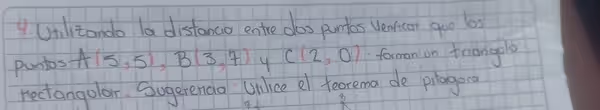 4 Utilizando la distancia entre dos puntos Verificar que los
puntos A(5,5), B(3,7) y C(2,0) forman un triangulo
rectangular. Sugerencia Utilice el teorema de pitagora